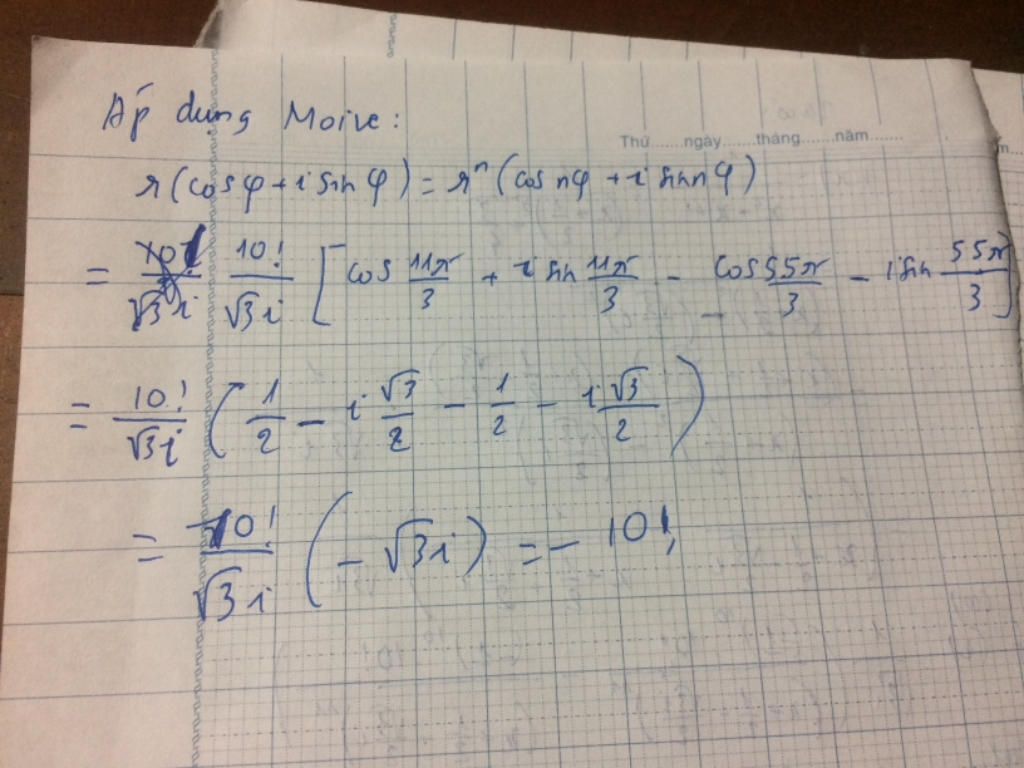 Áp dụng Moive:
Thứ......ngày......tháng......năm......
r(cosφ + i sinφ) = rⁿ(cos nφ + i sin nφ)
= 10!/√3i [cos 11π/3 + i sin 11π/3 - cos 55π/3 - i sin 55π/3]
= 10!/√3i (1/2 - i √3/2 - 1/2 - i √3/2)
= 10!/√3i (- √3i) = - 10!